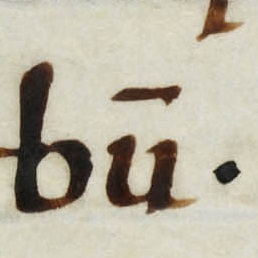 bū.